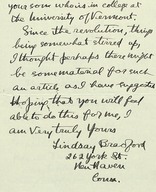 your son who is in college at
the University of Vermont.
Since the revolution, things
being somewhat stirred up,
I thought perhaps there might
be some material for such
an article as I have suggested
Hoping that you will feel
able to do this for me, I
am very truly Yours
Lindsay Bradford
262 York St.
New Haven
Conn.